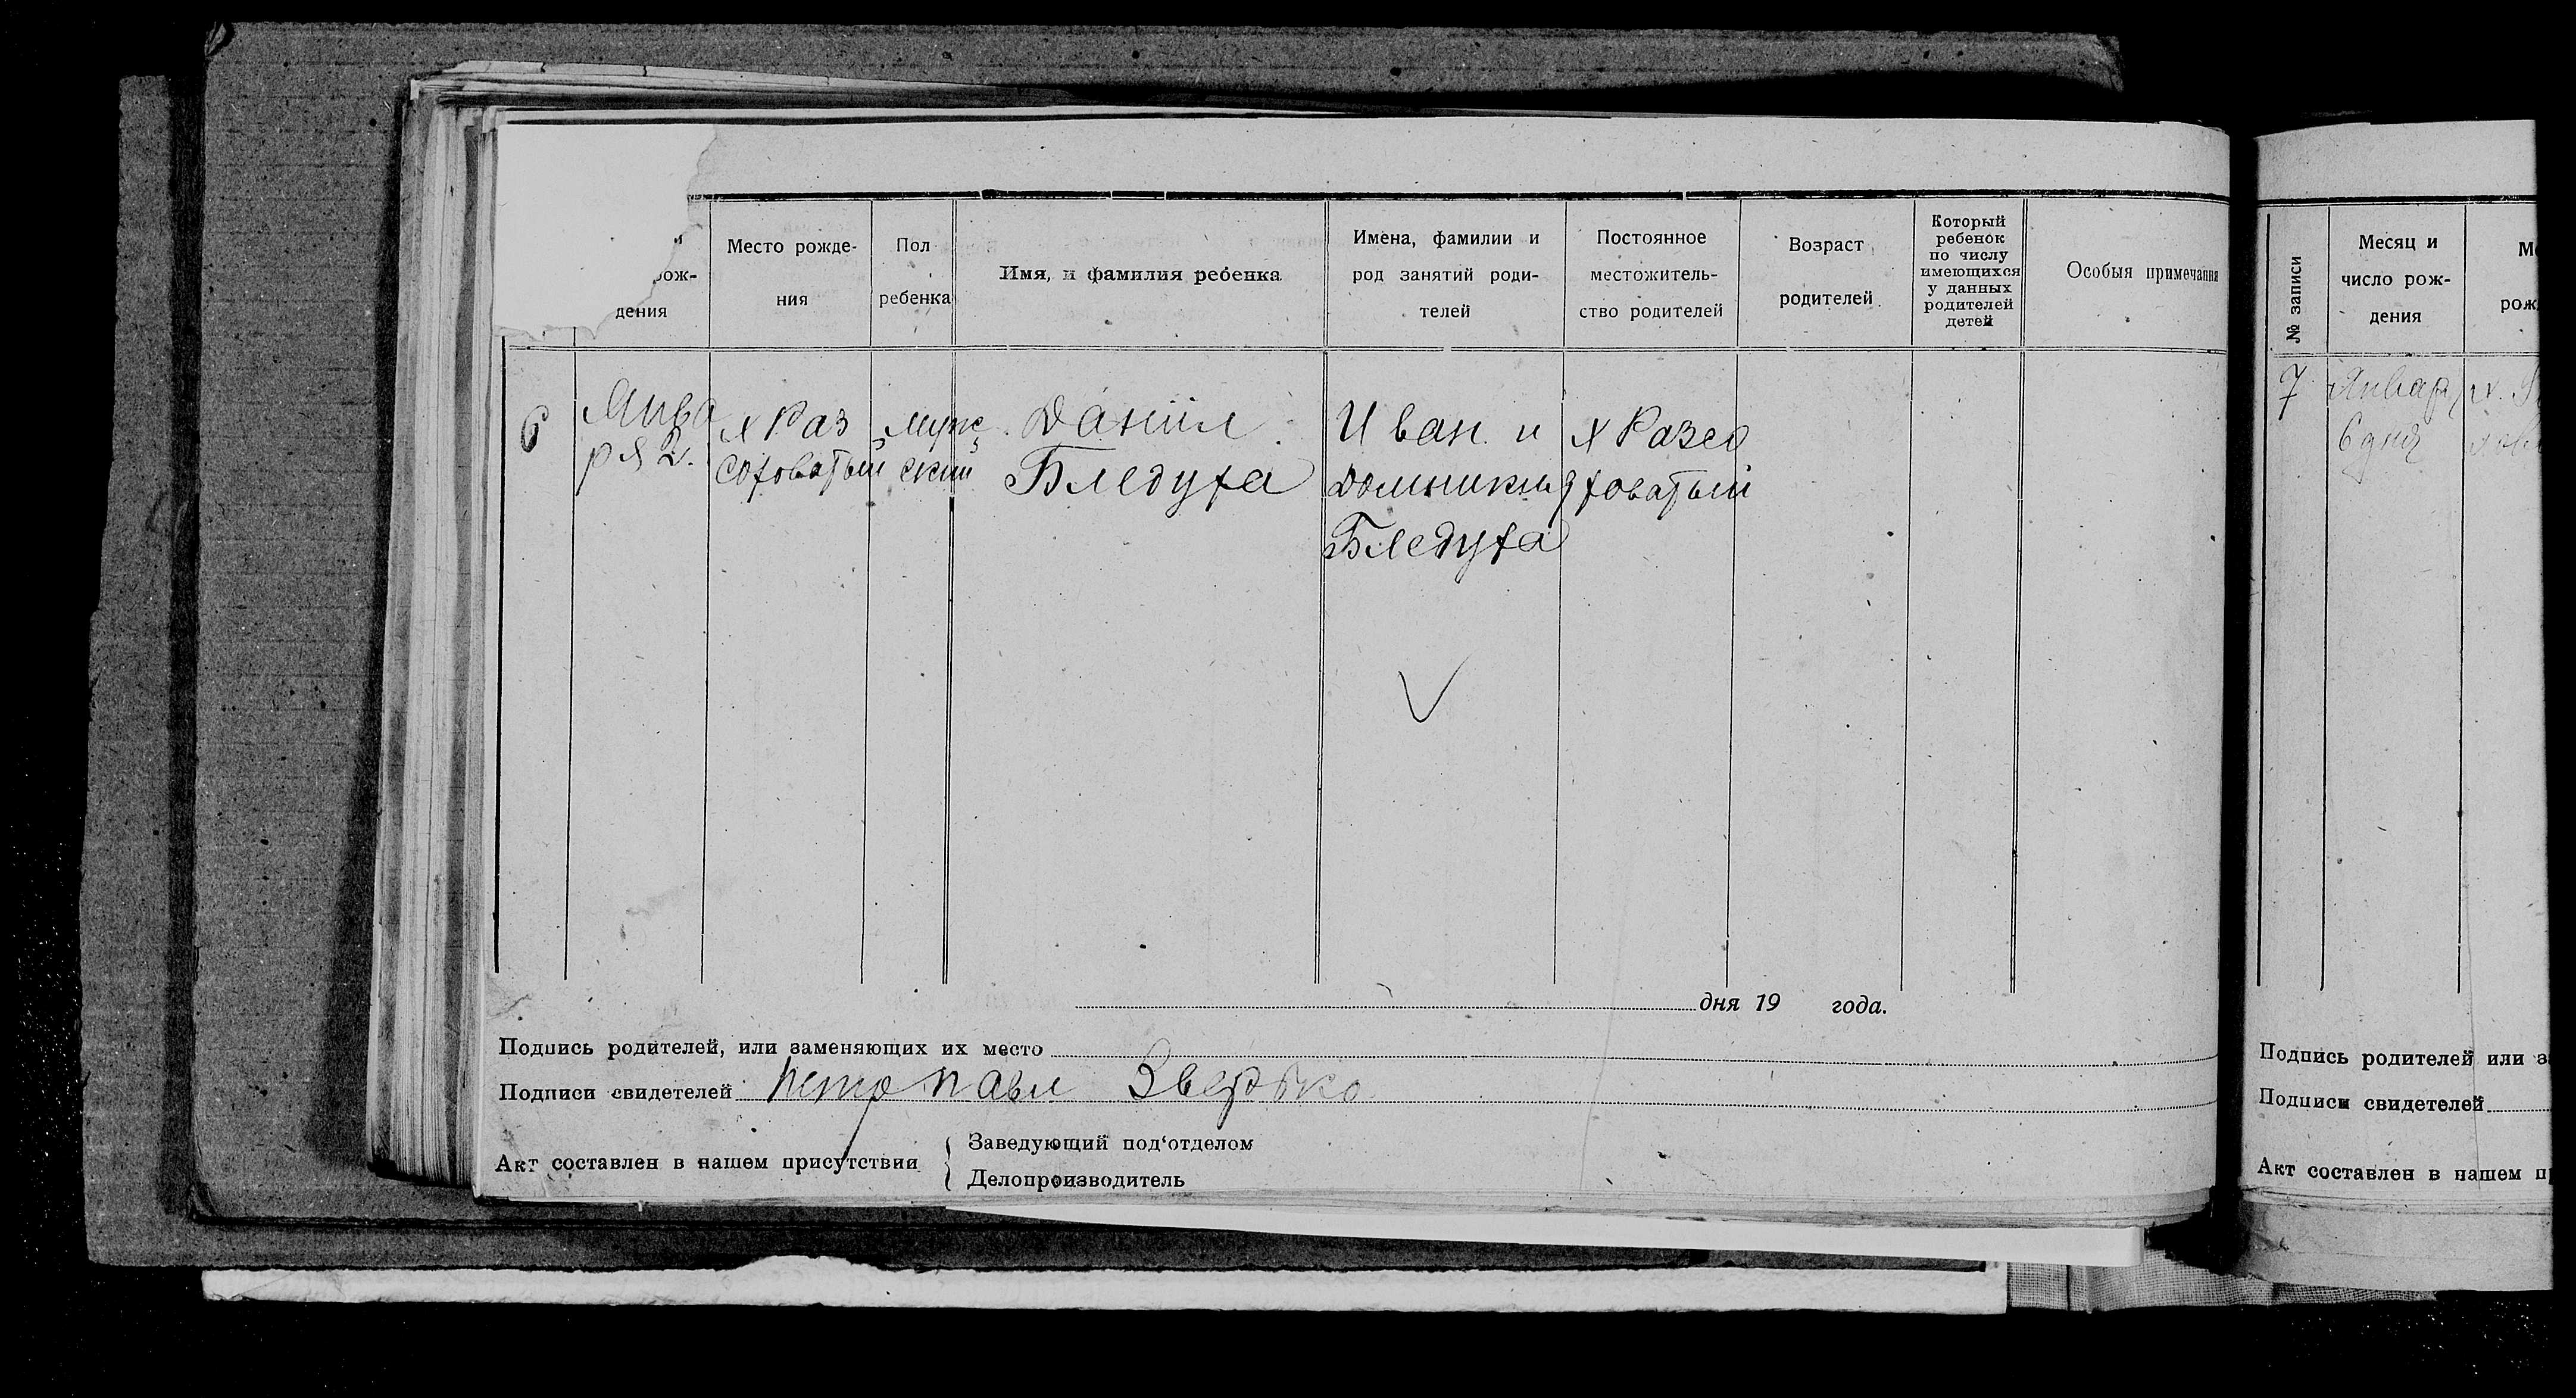 рож-
дения
Место рожде-
ния
Пол
ребенка
Имя, и фамилия ребенка
Имена, фамилии и
род занятий роди-
телей
Постоянное
местожитель-
ство родителей
Возраст
родителей
Который
ребенок
по числу
имеющихся
у данных
родителей
детей
Особыя примечания
6
Янва
ря 2.
х Раз
соховатый
муж
ский
Даніил
Бледуха
Иван и
Домникия
Бледуха
х Разсо
ховатый
дня 19 года.
Подпись родителей, или заменяющих их место
Подписи свидетелей Петр Павл
Акт составлен в нашем присутствии
Заведующий под‘отделом
Делопроизводитель
№ записи
Месяц и
число рож-
дения
рож
7
Января
6 дня
Подпись родителей или з
Подписи свидетелей
Акт составлен в нашем п